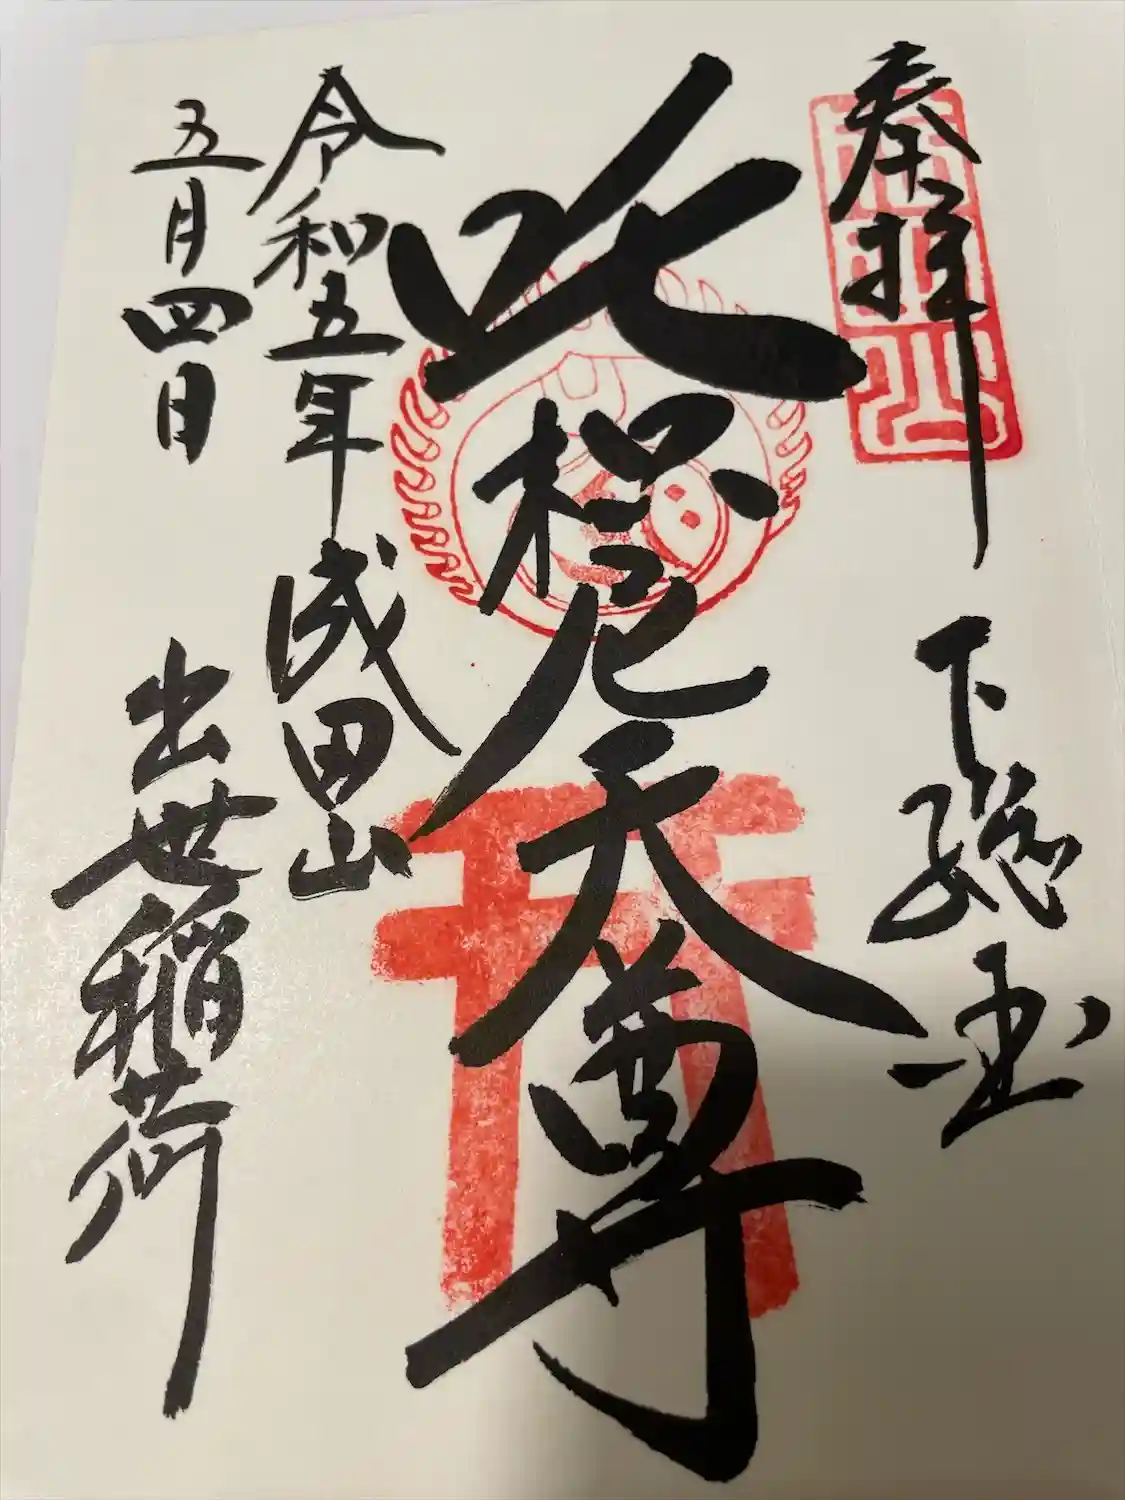 奉拝
下総国
吒枳尼天尊
令和五年 成田山
五月四日 出世稲荷